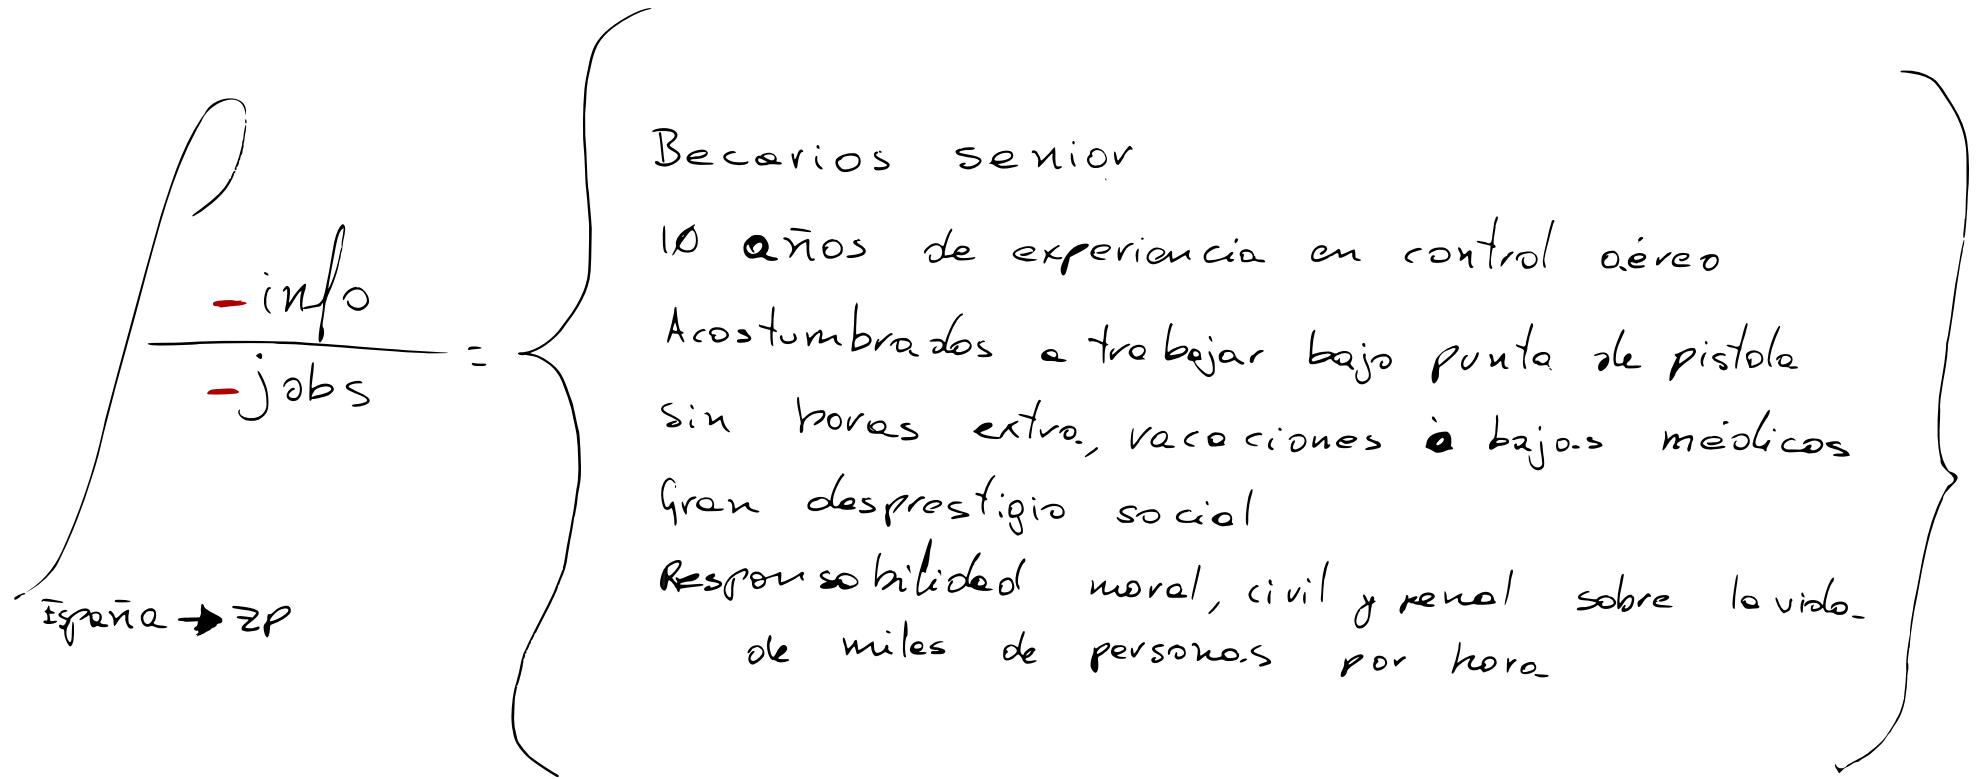 -info
-jobs
=
España → ZP
Becarios senior
10 años de experiencia en control aéreo
Acostumbrados a trabajar bajo punta de pistola
sin horas extra, vacaciones o bajas médicas
Gran desprestigio social
Responsabilidad moral, civil y penal sobre la vida
de miles de personas por hora